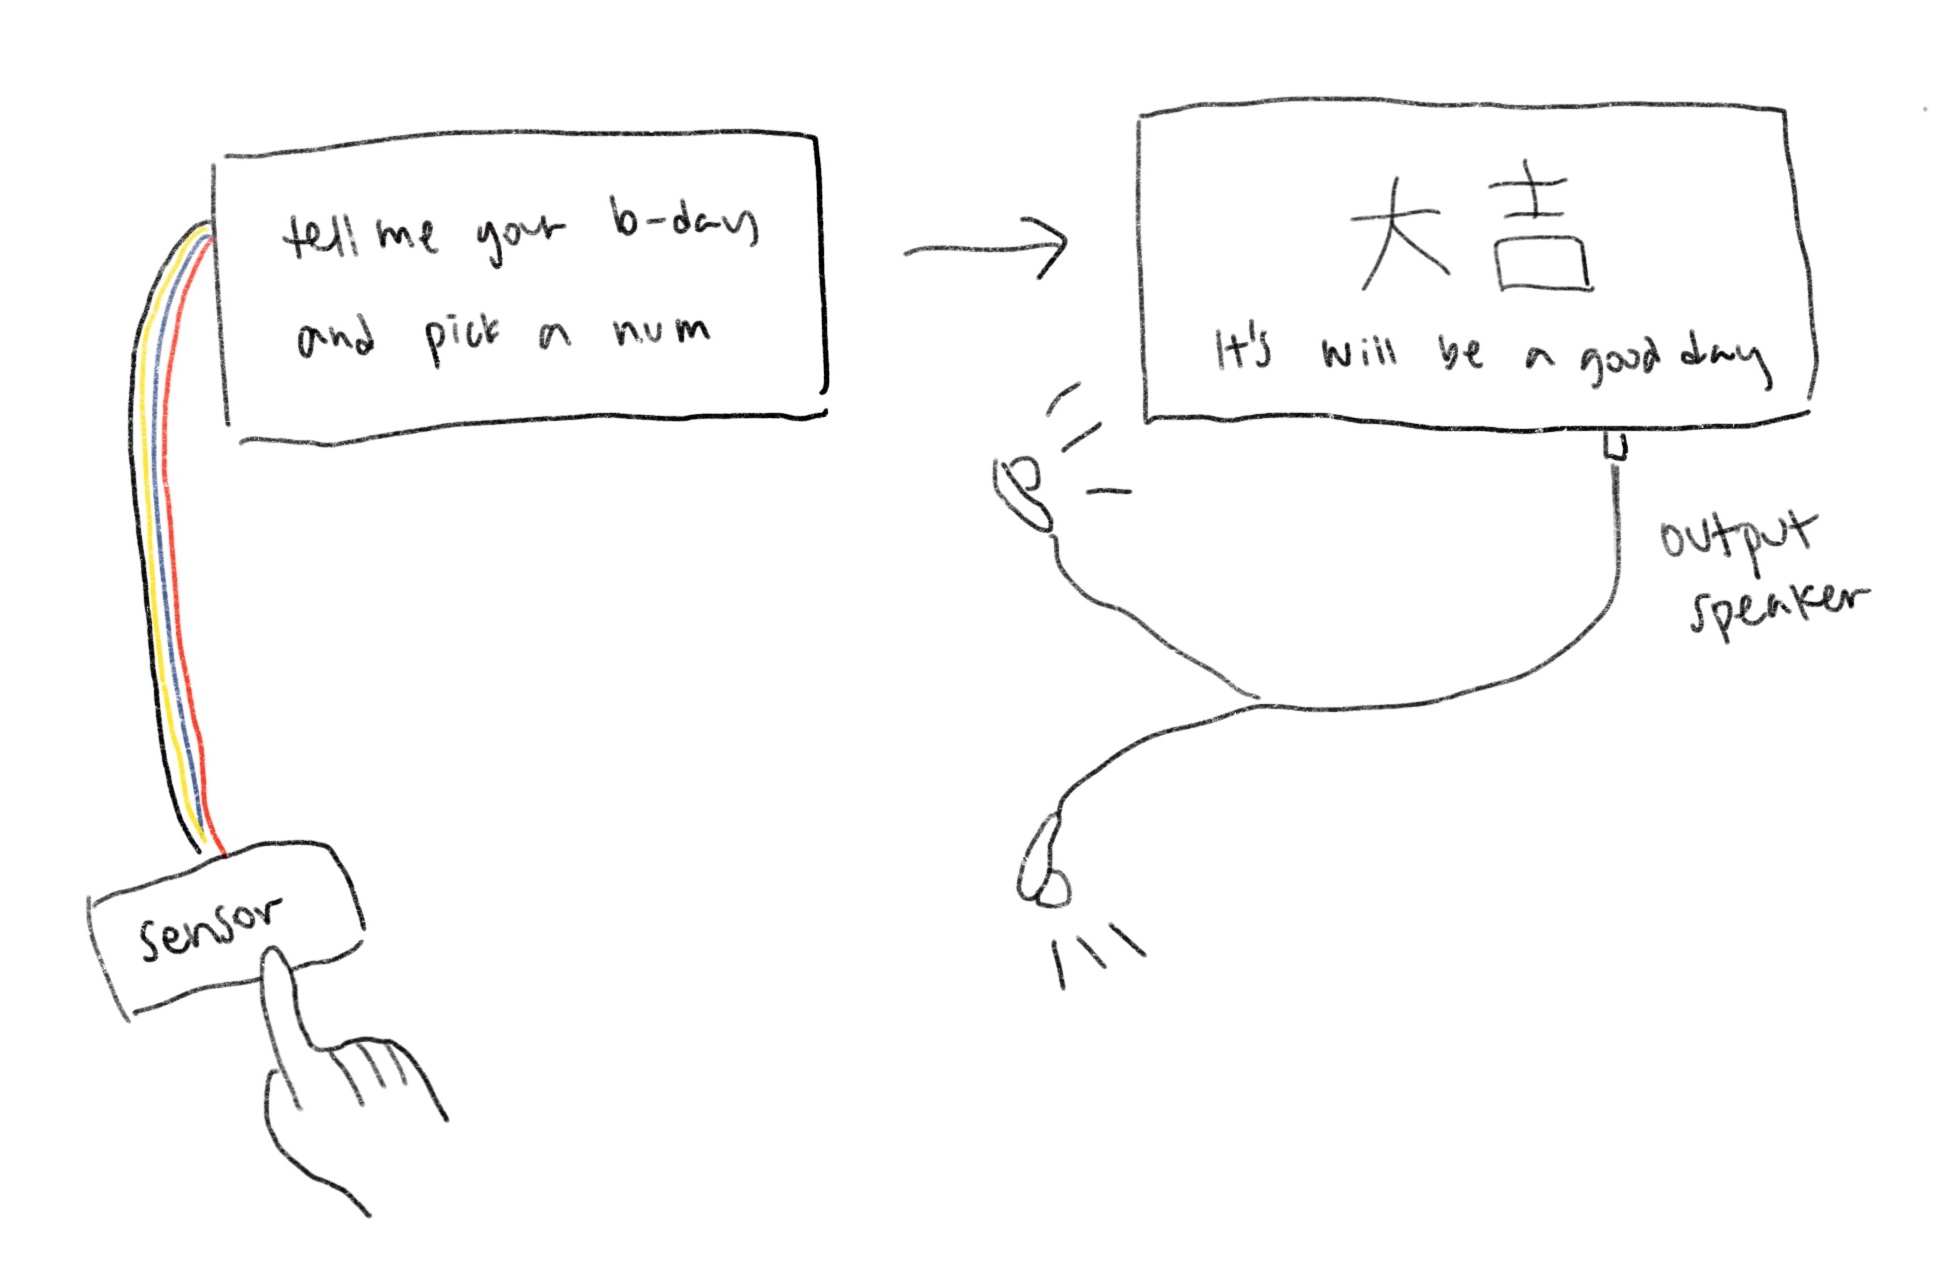 tell me your b-day
and pick a num
大吉
It's will be a good day
output
speaker
sensor